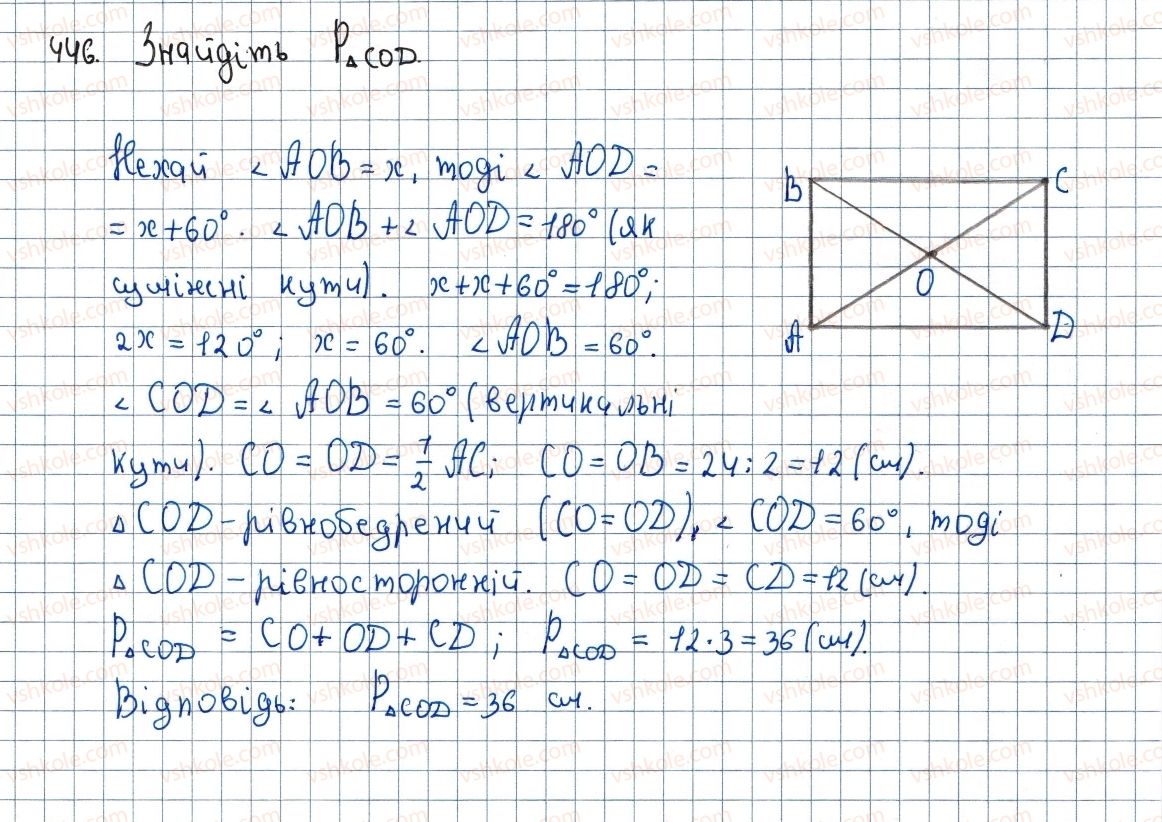 446. Знайдіть P△COD.
Нехай <AOB = x, тоді <AOD =
= x+60°. <AOB + <AOD = 180° (як
суміжні кути). x+x+60° = 180°;
2x = 120°; x = 60°. <AOB = 60°.
<COD = <AOB = 60° (вертикальні
кути). CO = OD = 1/2 AC; CO = OB = 24 : 2 = 12 (см).
△COD – рівнобедрений (CO = OD), <COD = 60°, тоді
△COD – рівносторонній. CO = OD = CD = 12 (см).
P△COD = CO + OD + CD; P△COD = 12 · 3 = 36 (см).
Відповідь: P△COD = 36 см.
B C
O
A D
vshkole.com